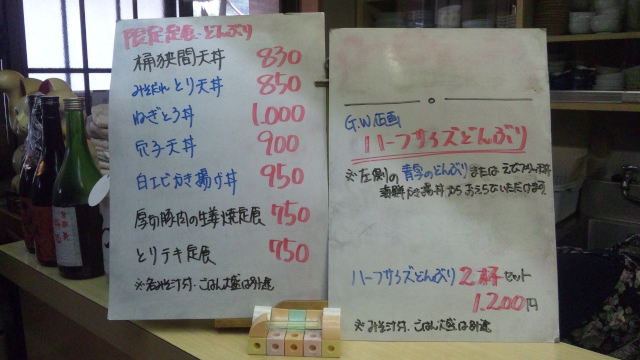 限定定食・どんぶり
桶狭間天丼 830
みそだれとり天丼 850
ねぎとろ丼 1,000
穴子天丼 900
白エビかき揚げ丼 950
厚切豚肉の生姜焼定食 750
とりテキ定食 750
※みそ汁付・ごはん大盛は別途
G.W企画
ハーフサイズどんぶり
※左側の青字のどんぶり または えびフリャー丼
海鮮かき揚丼 から おえらびいただけます
ハーフサイズどんぶり 2杯セット
1,200円
※みそ汁付・ごはん大盛は別途